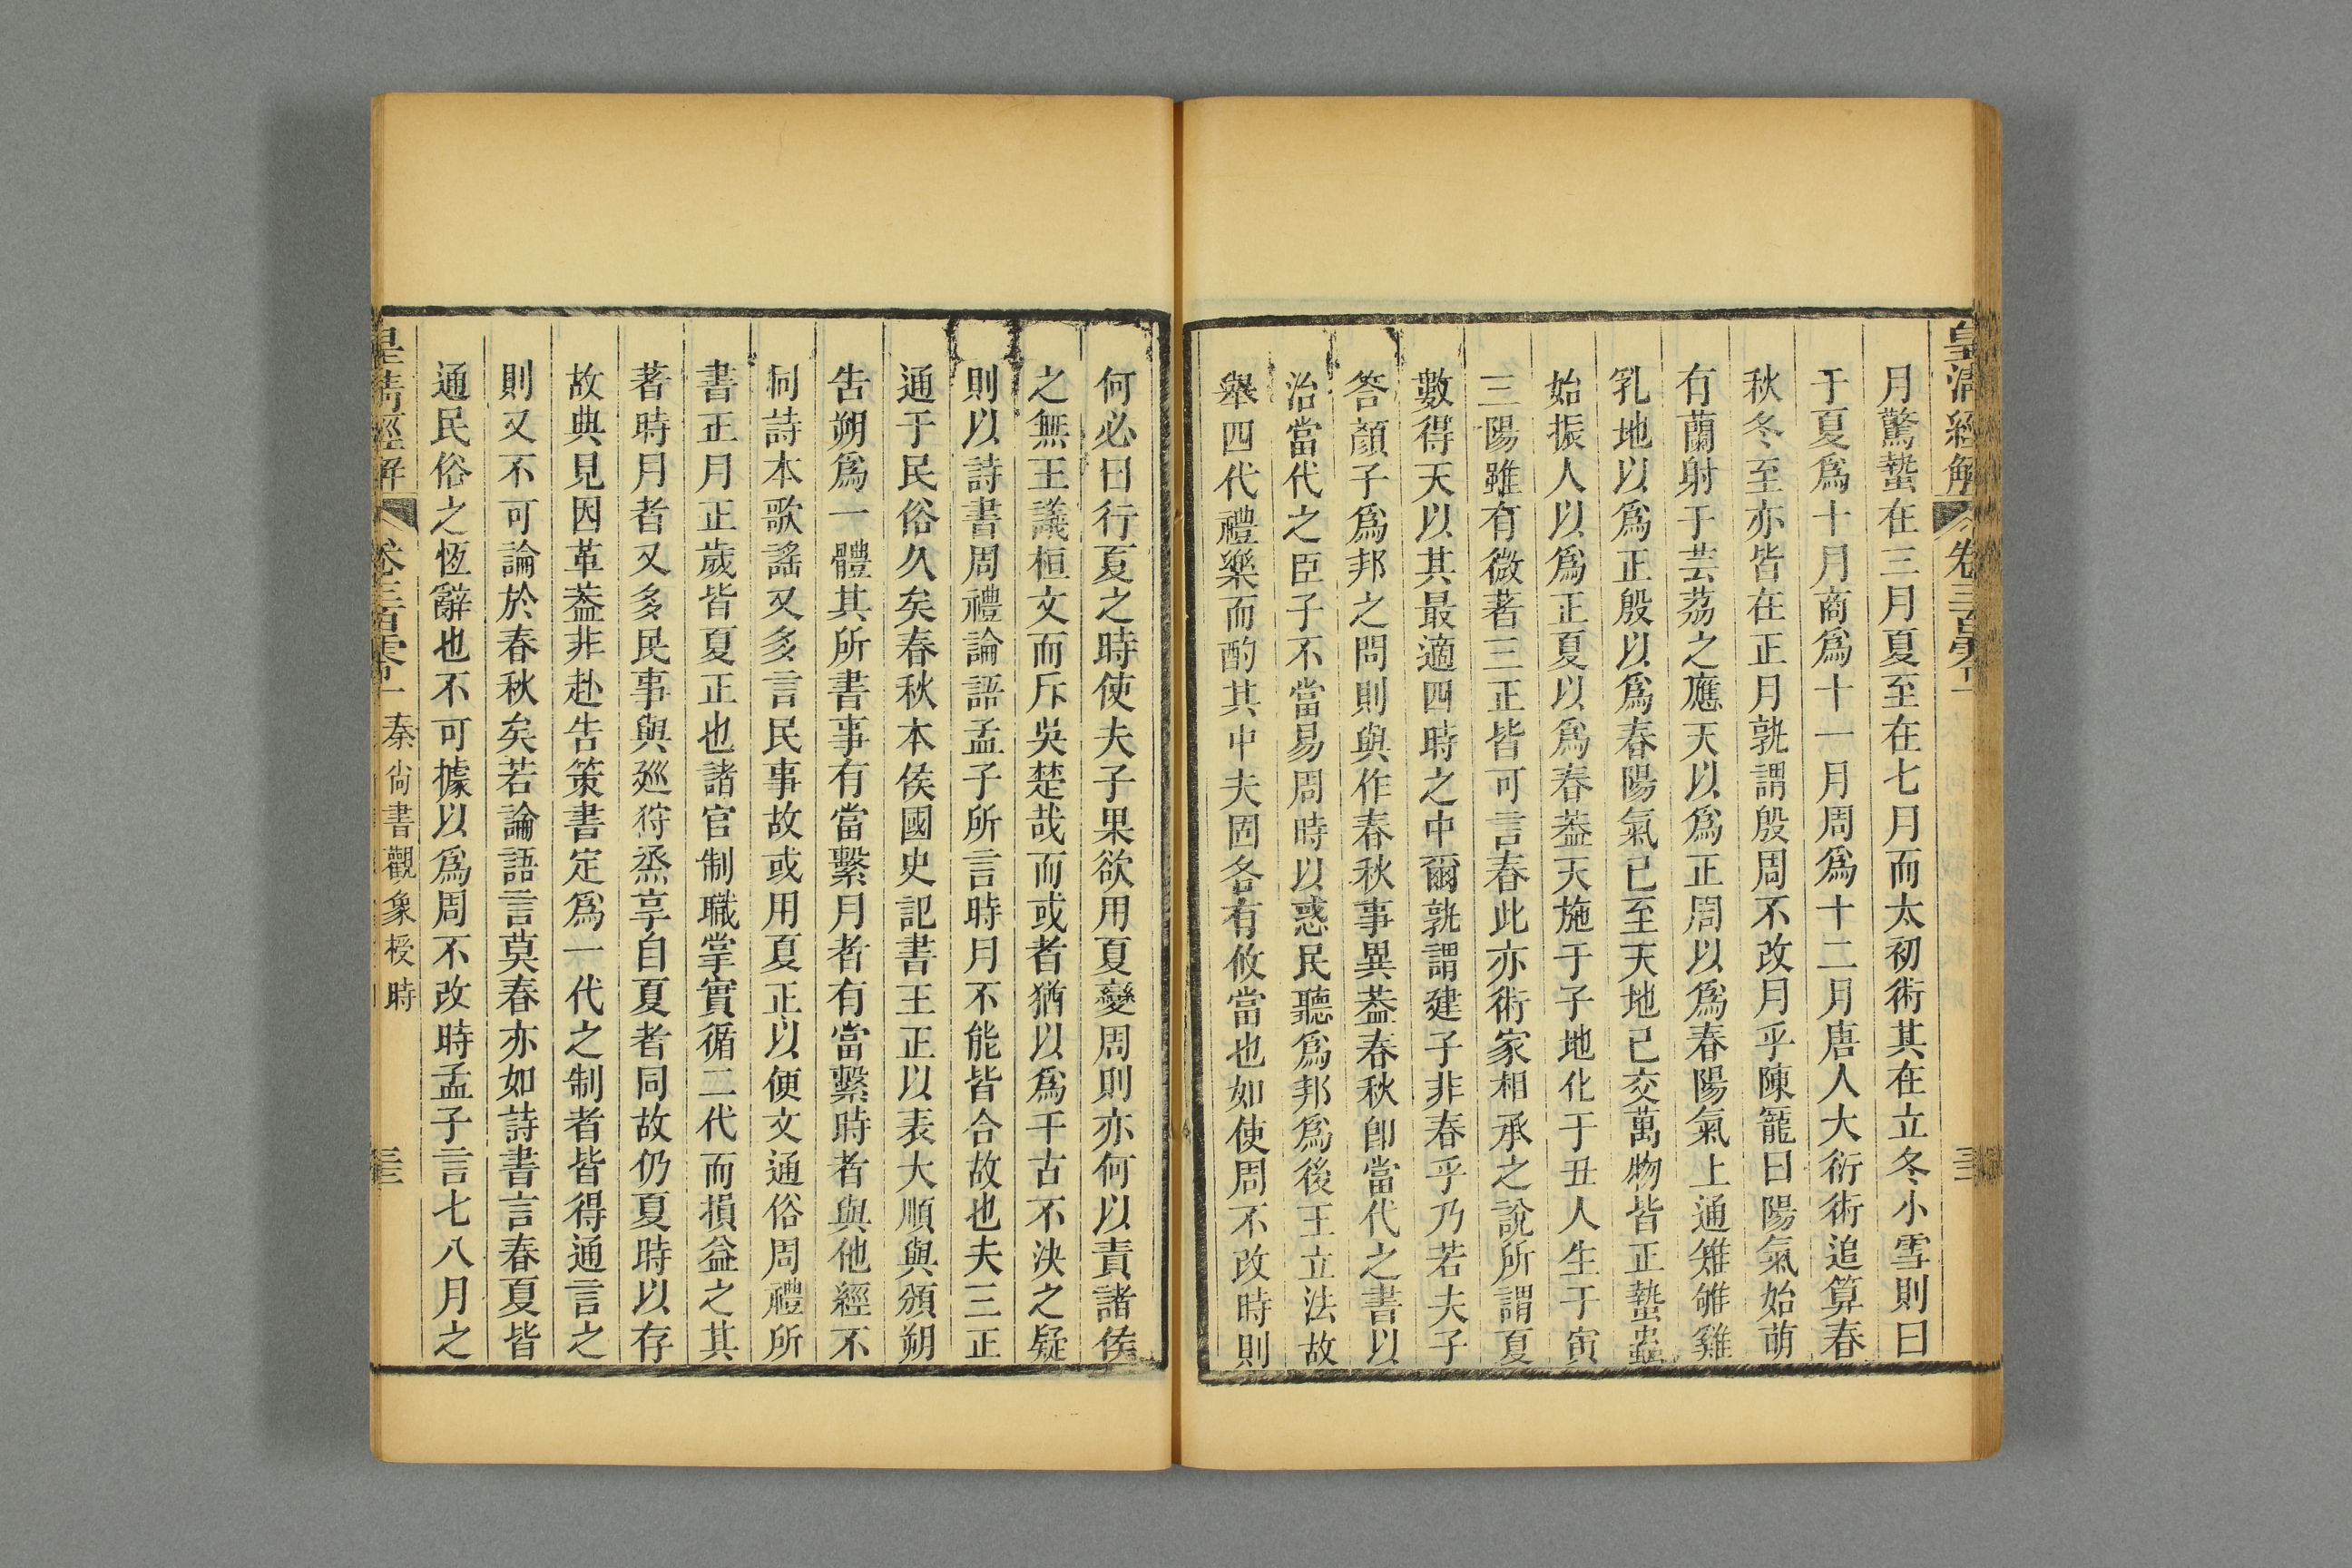 皇清經解
月驚蟄在三月夏至在七月而太初術其在立冬小雪則曰
于夏爲十月商爲十一月周爲十二月唐人大衍術追算春
秋冬至亦皆在正月孰謂殷周不改月乎陳寵曰陽氣始萌
有蘭射干芸荔之應天以爲正周以爲春陽氣上通雉雊雞
乳地以爲正殷以爲春陽氣已至天地已交萬物皆正蟄蟲
始振人以爲正夏以爲春葢天施于子地化于丑人生于寅
三陽雖有微著三正皆可言春此亦術家相承之說所謂夏
數得天以其最適四時之中爾孰謂建子非春乎乃若夫子
答顏子爲邦之問則與作春秋事異葢春秋卽當代之書以
治當代之臣子不當易周時以惑民聽爲邦爲後王立法故
舉四代禮樂而酌其中夫固各有攸當也如使周不改時則
何必曰行夏之時使夫子果欲用夏變周則亦何以責諸侯
之無王議桓文而斥吳楚哉而或者猶以爲千古不決之疑
則以詩書周禮論語孟子所言時月不能皆合故也夫三正
通于民俗久矣春秋本侯國史記書王正以表大順與頒朔
告朔爲一體其所書事有當繫月者有當繫時者與他經不
同詩本歌謠又多言民事故或用夏正以便文通俗周禮所
書正月正歲皆夏正也諸官制職掌實循二代而損益之其
著時月者又多民事與廵狩烝享自夏者同故仍夏時以存
故典見因革葢非赴告策書定爲一代之制者皆得通言之
則又不可論於春秋矣若論語言莫春亦如詩書言春夏皆
通民俗之恆辭也不可據以爲周不改時孟子言七八月之
皇清經解
秦尙書觀象授時